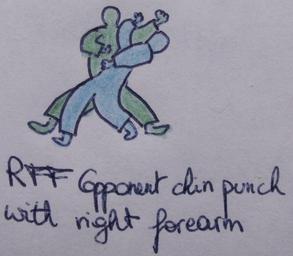 RTF Opponent chin punch
with right forearm